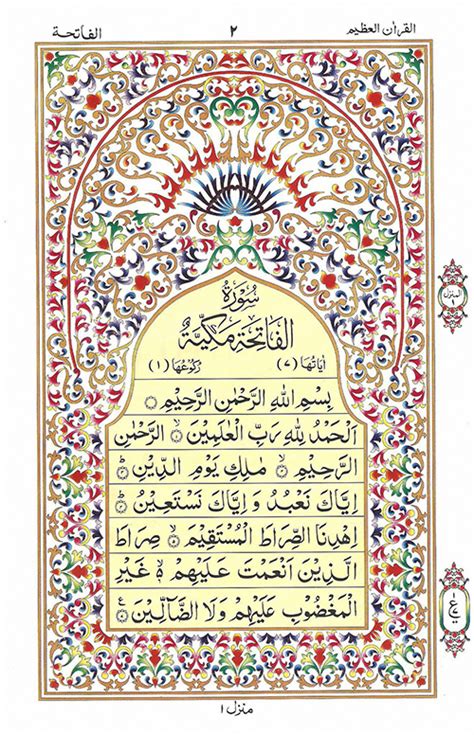 القرأن العظيم ٢ الفاتحة
سُوْرَةُ
الْفَاتِحَةِ مَكِّيَّةٌ
اٰيَاتُهَا (٧) رُكُوْعُهَا (١)
بِسْمِ اللهِ الرَّحْمٰنِ الرَّحِيْمِ
اَلْحَمْدُ لِلّٰهِ رَبِّ الْعٰلَمِيْنَ الرَّحْمٰنِ
الرَّحِيْمِ مٰلِكِ يَوْمِ الدِّيْنِ
اِيَّاكَ نَعْبُدُ وَ اِيَّاكَ نَسْتَعِيْنُ
اِهْدِنَا الصِّرَاطَ الْمُسْتَقِيْمَ صِرَاطَ
الَّذِيْنَ اَنْعَمْتَ عَلَيْهِمْ غَيْرِ
الْمَغْضُوْبِ عَلَيْهِمْ وَلَا الضَّآلِّيْنَ
المنزل ١
منزل ١